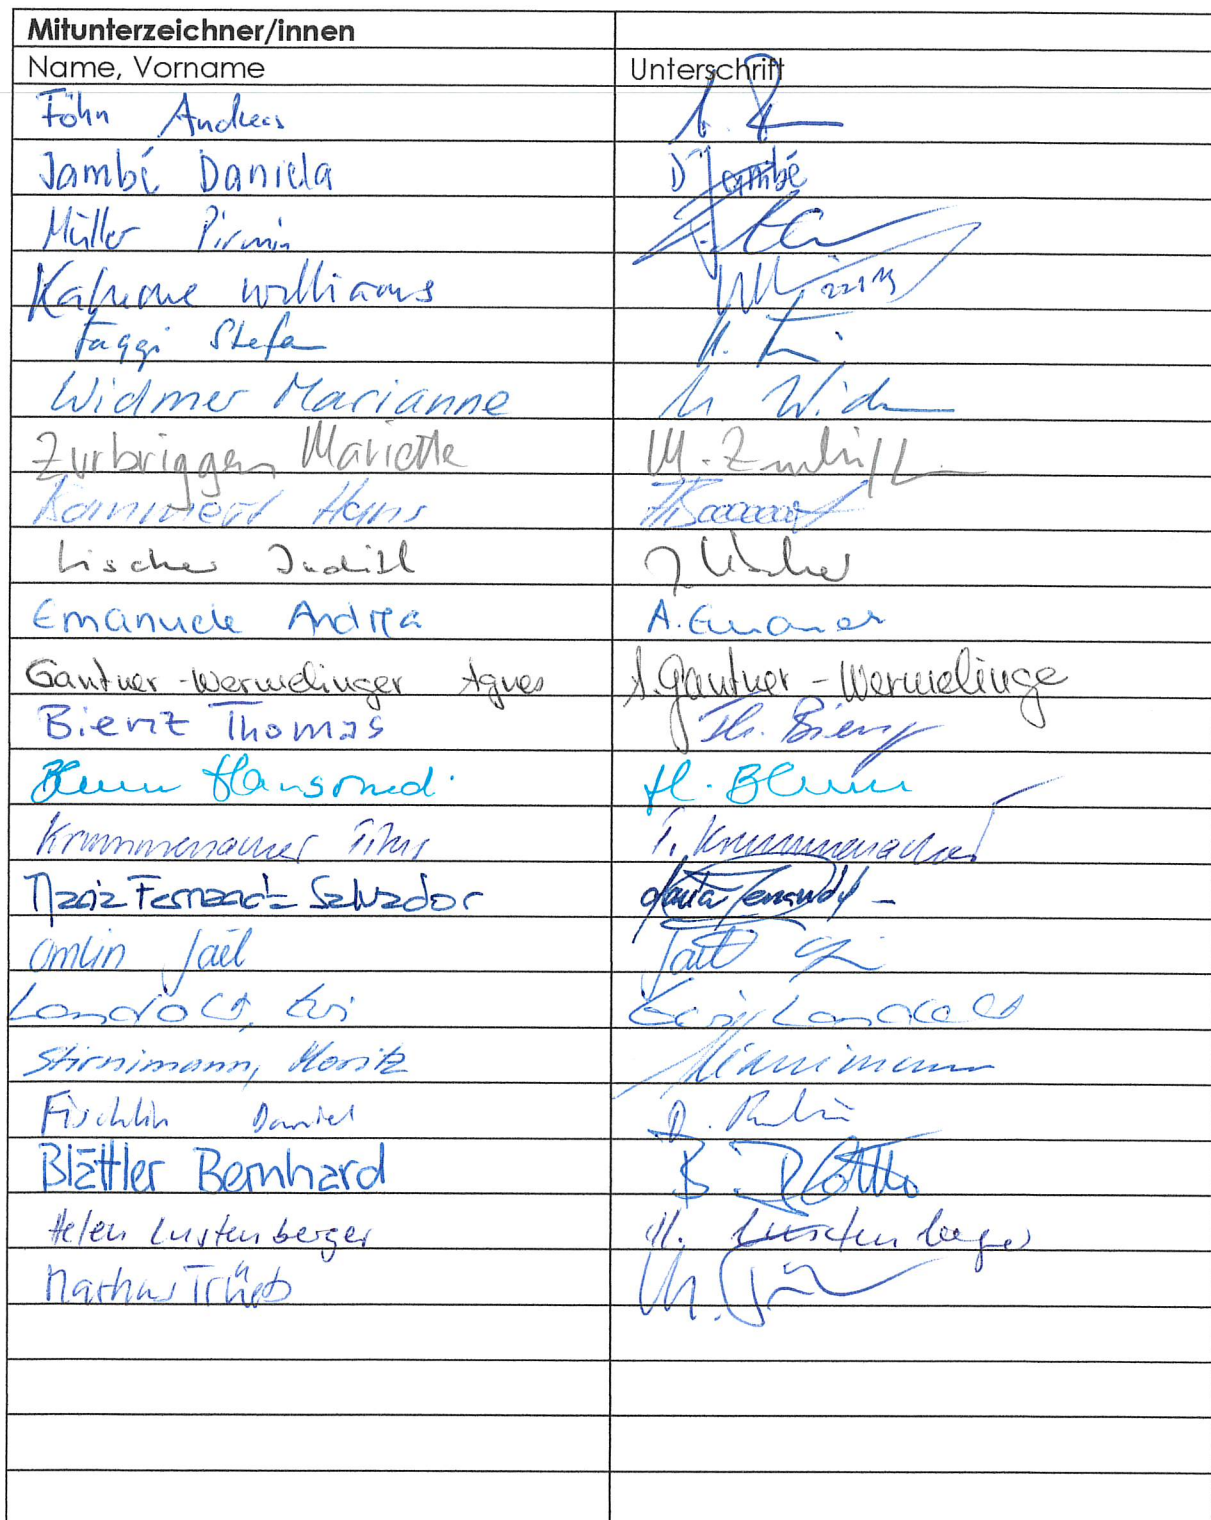 Mitunterzeichner/innen
Name, Vorname Unterschrift
Föhn Andreas
Jambé Daniela D Jambé
Müller Pirmin
Williams
Faggi Stefan
Widmer Marianne M Widm
Zurbriggen Mariette M. Zurbriggen
Kammert Hans
Lischer Judith J Lischer
Emanuele Andrea A. Emanuel
Gantner-Wermelinger Agnes A. Gantner-Wermelinge
Bienz Thomas Th. Bienz
Blum H. Blum
Krummenacher Titus T. Krummenacher
Maria Fernanda Salvador Maria Fernanda
Omlin Jaël Jaël
Landolt, Evi Evi Landolt
Stirnimann, Moritz Stirnimann
Fischlin Daniel D.
Blättler Bernhard B. Blättler
Helen Lustenberger H. Lustenberger
Markus Trüeb M.